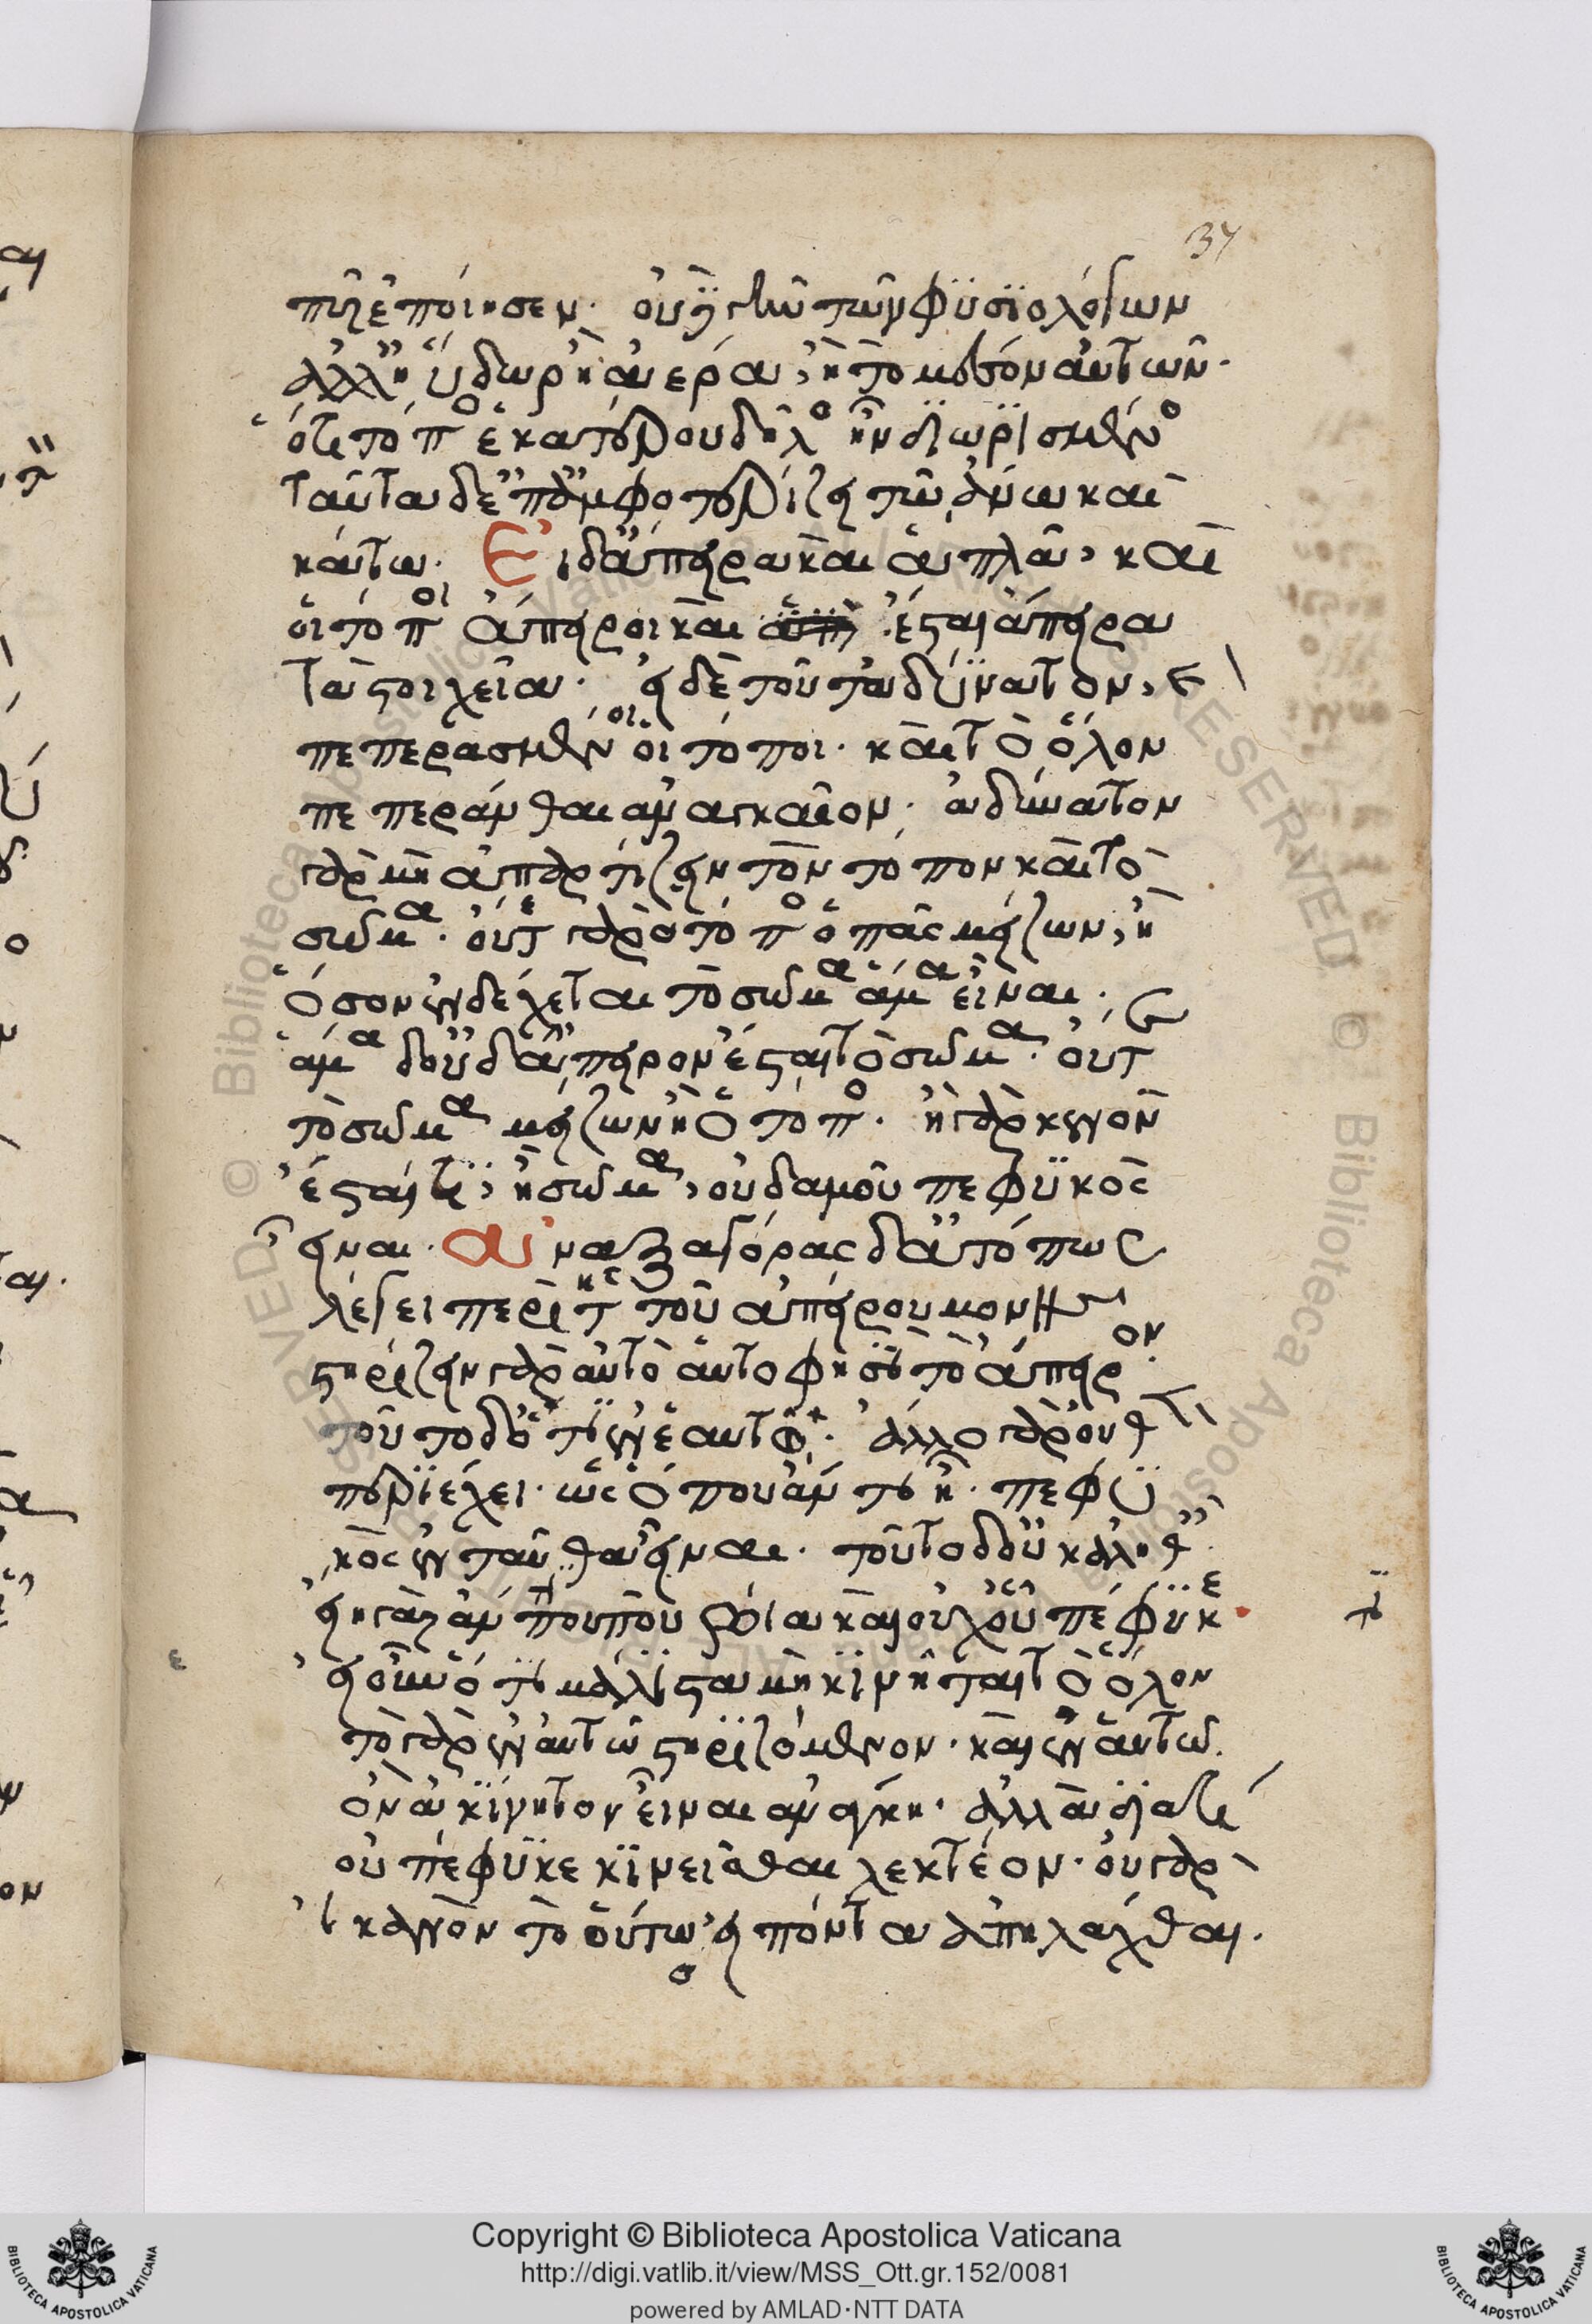 37
πῦρ ἐποίησεν. οὐδὲ γῆν τῶν φυσιολόγων
ἀλλ' ἢ ὕδωρ ἢ ἀέρα, ἢ τὸ μέσον αὐτῶν.
ὅτι τόπος ἑκατέρου δῆλος ἦν διωρισμένος
ταῦτα δ' ἐπαμφοτερίζει τῷ ἄνω καὶ
κάτω. Εἰ δ' ἄπειρα καὶ ἁπλᾶ, καὶ
οἱ τόποι ἄπειροι καὶ ἔσται ἄπειρα
τὰ στοιχεῖα. εἰ δὲ τοῦτ' ἀδύνατον, καὶ
πεπερασμένοι οἱ τόποι. καὶ τὸ ὅλον
πεπεράνθαι ἀναγκαῖον. ἀδύνατον
γὰρ μὴ ἀπαρτίζειν τὸν τόπον καὶ τὸ
σῶμα. οὔτε γὰρ ὁ τόπος ὁ πᾶς μείζων, ἢ
ὅσον ἐνδέχεται τὸ σῶμα ἅμα εἶναι.
ἅμα δ' οὐδ' ἄπειρον ἔσται τὸ σῶμα. οὔτε
τὸ σῶμα μείζων ἢ ὁ τόπος. ἢ γὰρ κενὸν
ἔσται τι, ἢ σῶμα, οὐδαμοῦ πεφυκὸς
εἶναι. Ἀναξαγόρας δ' ἀτόπως
λέγει περὶ τῆς τοῦ ἀπείρου μονῆς
στηρίζειν γὰρ αὐτὸ αὑτό φησι τὸ ἄπειρον.
τοῦτο δὲ ὅτι ἐν ἑαυτῷ. ἄλλο γὰρ οὐδὲν
περιέχει. ὡς ὅπου ἄν τι ᾖ. πεφυ
κὸς ἐνταῦθα εἶναι. τοῦτο δ' οὐκ ἀληθές.
εἴη γὰρ ἄν τί που βίᾳ καὶ οὐχ οὗ πέφυκε
εἰ οὖν ὅτι μάλιστα μὴ κινεῖται τὸ ὅλον
τὸ γὰρ ἐν αὑτῷ στηριζόμενον. καὶ ἐν αὑτῷ
ὂν ἀκίνητον εἶναι ἀνάγκη. ἀλλὰ διατί
οὐ πέφυκε κινεῖσθαι λεκτέον. οὐ γὰρ
ἱκανὸν τὸ οὕτως εἰπόντα ἀπηλλάχθαι.
Copyright © Biblioteca Apostolica Vaticana
http://digi.vatlib.it/view/MSS_Ott.gr.152/0081
powered by AMLAD·NTT DATA